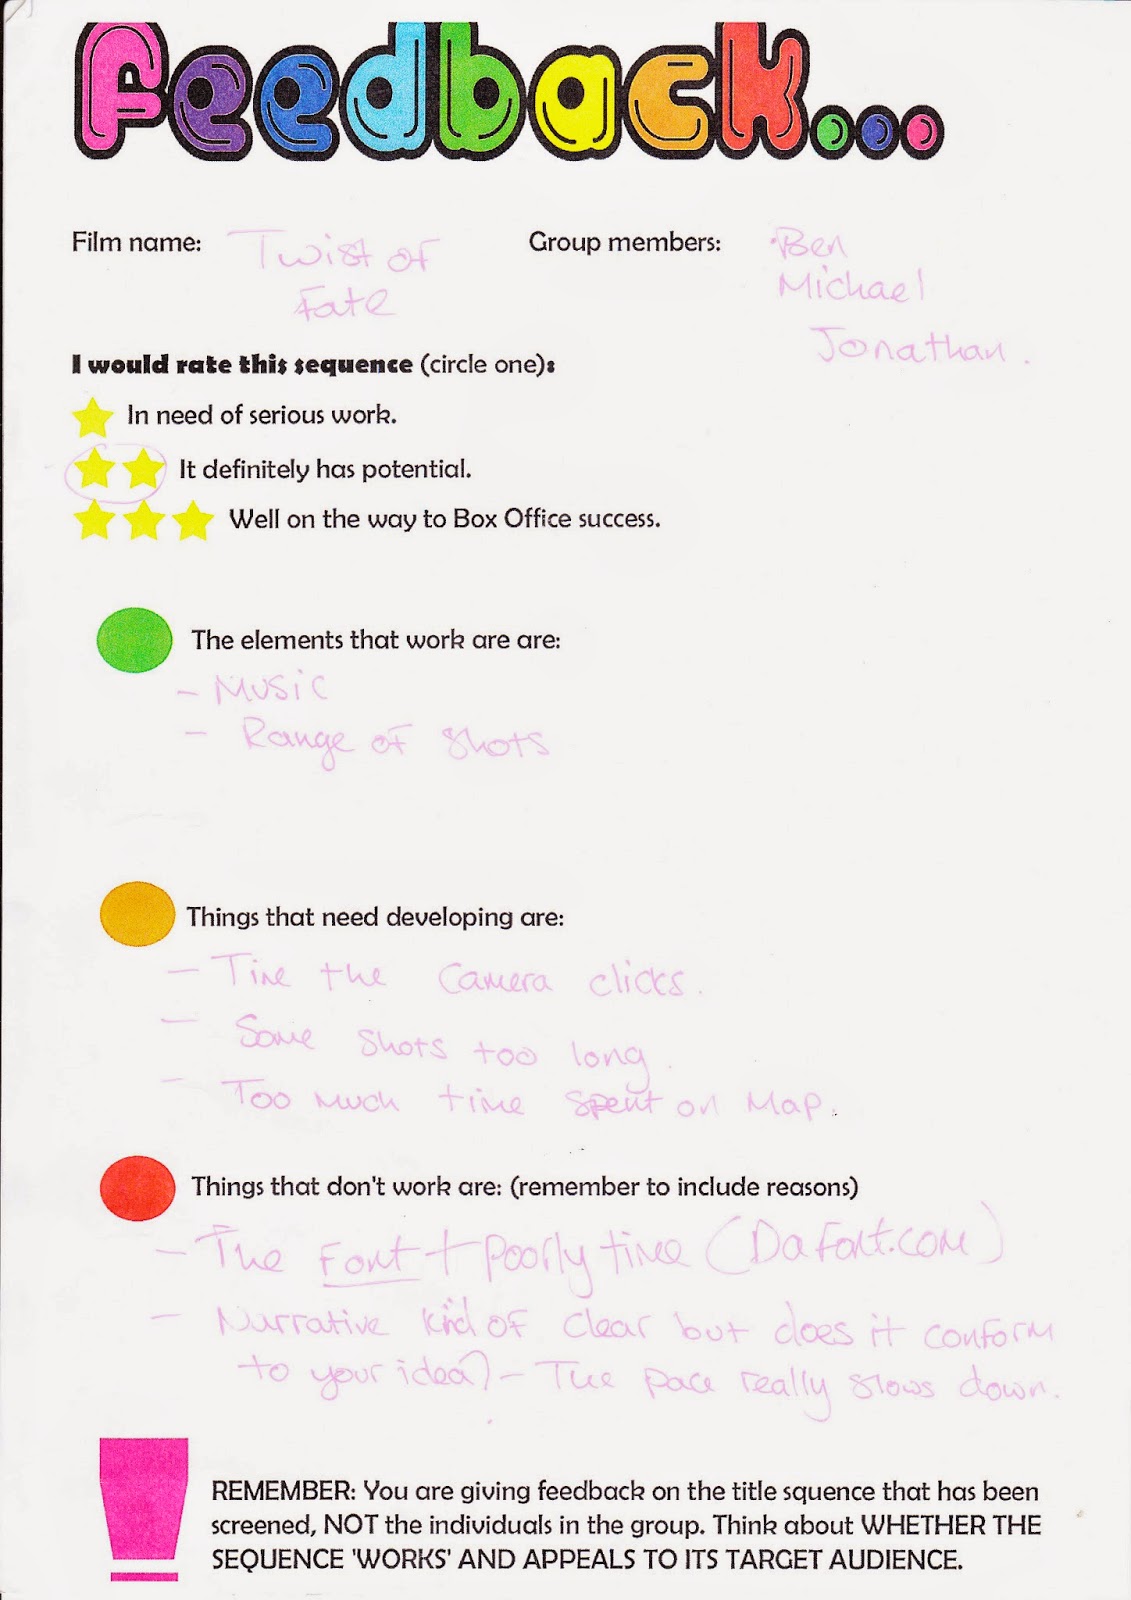 Feedback...
Film name: Twist of Fate
Group members: Ben
Michael
Jonathan.
I would rate this sequence (circle one):
In need of serious work.
It definitely has potential.
Well on the way to Box Office success.
The elements that work are are:
- Music
- Range of shots
Things that need developing are:
- Time the camera clicks.
- Some shots too long.
- Too much time spent on Map.
Things that don't work are: (remember to include reasons)
- The Font + poorly time (Dafont.com)
- Narrative kind of clear but does it conform
to your idea? - The pace really slows down.
REMEMBER: You are giving feedback on the title squence that has been
screened, NOT the individuals in the group. Think about WHETHER THE
SEQUENCE 'WORKS' AND APPEALS TO ITS TARGET AUDIENCE.